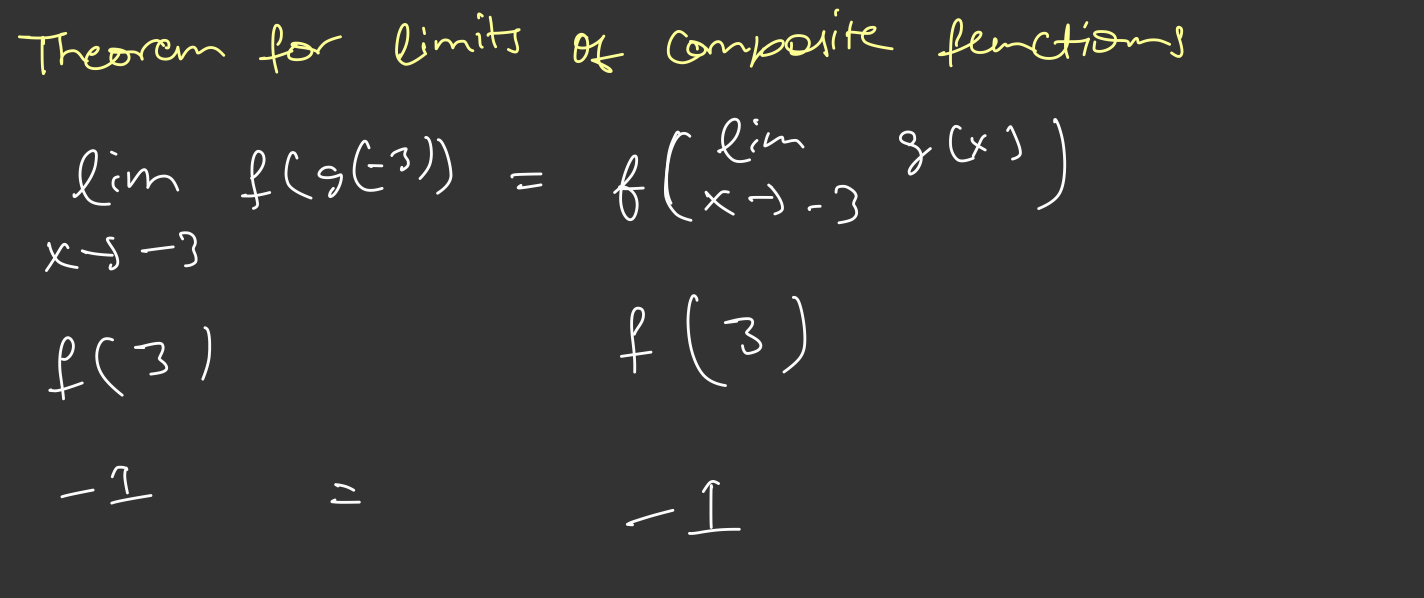 Theorem for limits of composite functions
lim f(g(-3)) = f(lim g(x))
x→-3 x→-3
f(3) f(3)
-1 = -1